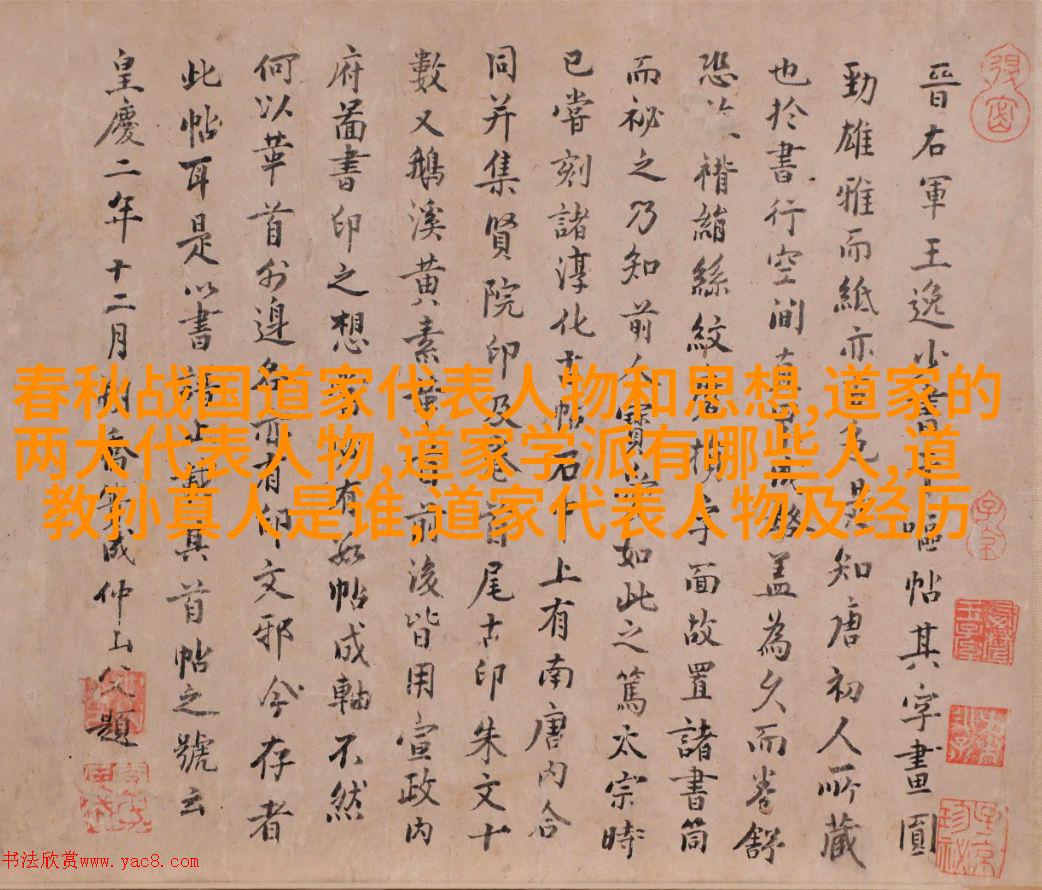 晉右軍王逸少書嘔帖其字畫圓
勁雄雅而紙亦是知唐初人所藏
也於書行空間蓋為久而卷舒
恐褙絹絲紋字面故置諸書筒
而祕之乃知前人寶如此之篤太宗時
已嘗刻諸淳化古帖石本上有南唐內合
同并集賢院印及卷首尾古印朱文十
數又鵝溪黃素前後皆用宣政內
府啚書印之想有如帖成軸不然
何以華首外邊各亦有印文邪今存者
此帖耳是以書真首帖之號云
皇慶二年十二月喬成仲山父題
春秋战国道家代表人物和思想,道家的
两大代表人物,道家学派有哪些人,道
教孙真人是谁,道家代表人物及经历
书法欣赏www.yac8.com